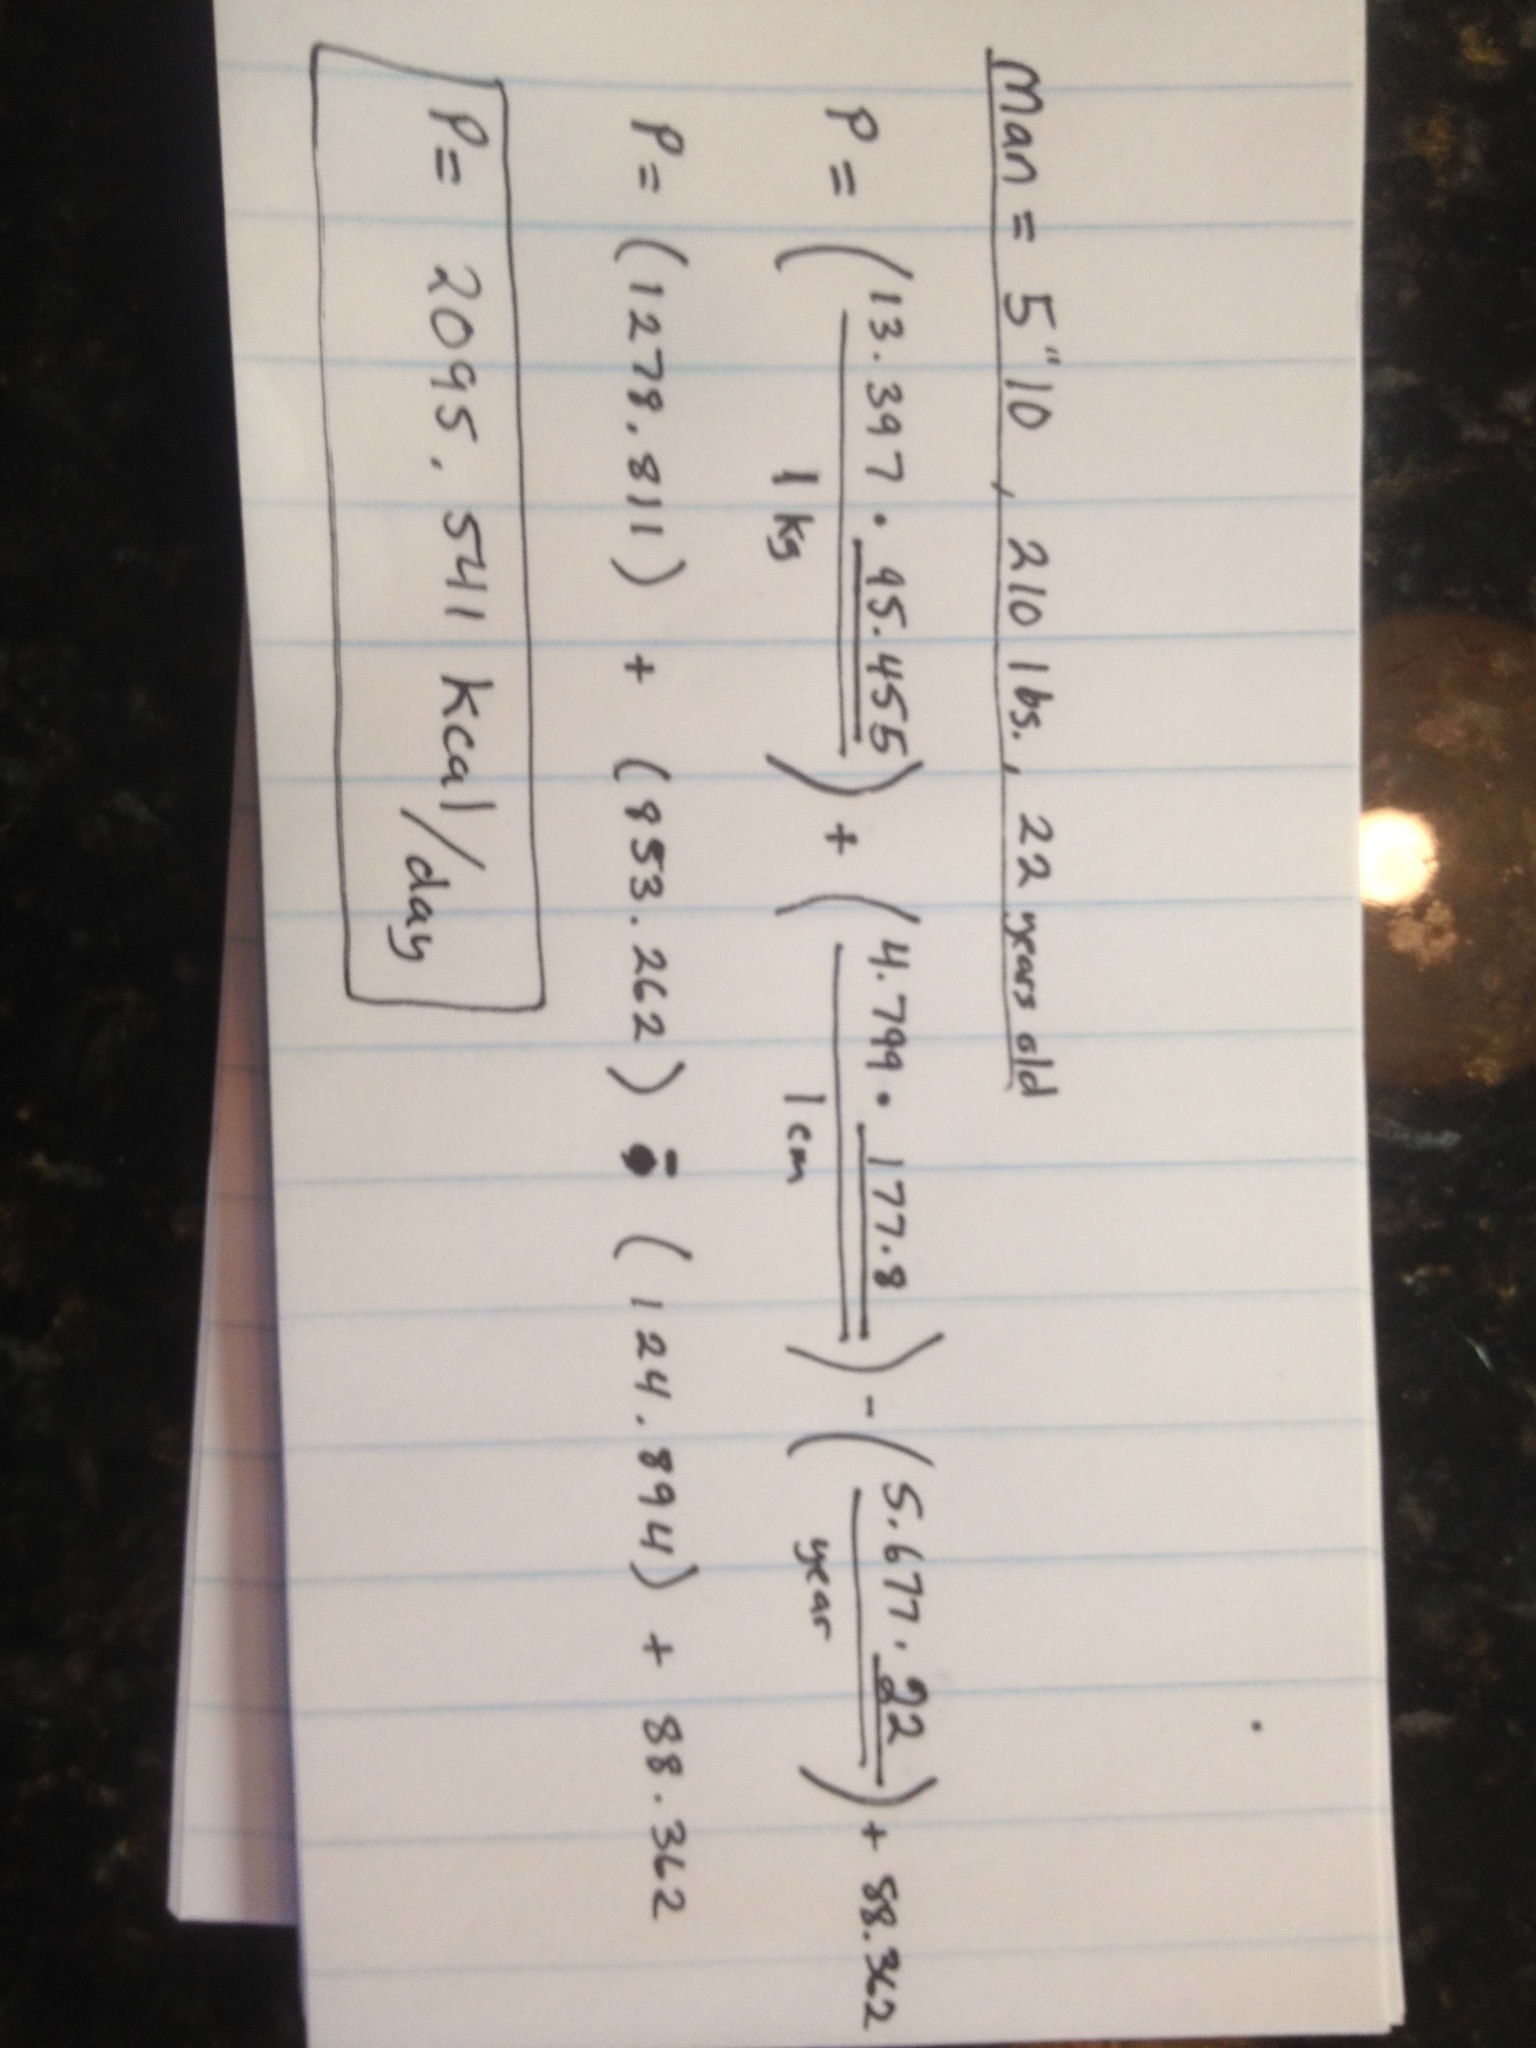 Man = 5"10, 210 lbs., 22 years old
P = (13.397 • 95.455 / 1 kg) + (4.799 • 177.8 / 1 cm) - (5.677 • 22 / year) + 88.362
P = (1278.811) + (853.262) - (124.894) + 88.362
P = 2095.541 Kcal/day